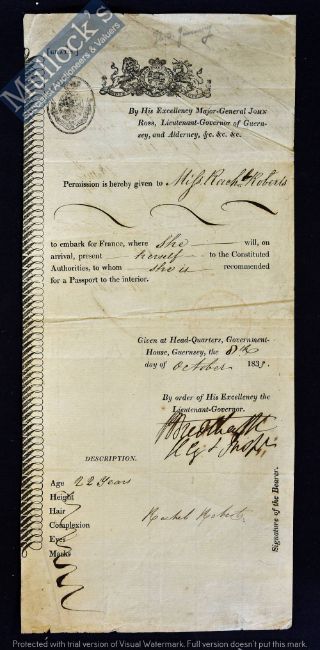 By His Excellency Major-General JOHN
ROSS, Lieutenant-Governor of Guern-
sey, and Alderney, &c. &c. &c.
Permission is hereby given to Miss Rachl. Roberts
to embark for France, where She will, on
arrival, present herself to the Constituted
Authorities, to whom She is recommended
for a Passport to the interior.
Given at Head-Quarters, Government-
House, Guernsey, the 8th
day of October 1838.
By order of His Excellency the
Lieutenant-Governor.
DESCRIPTION.
Age 22 Years
Height
Hair
Complexion
Rachel Roberts
Eyes
Marks
Signature of the Bearer.
Mullock's
Specialist Auctioneers & Valuers
Protected with trial version of Visual Watermark. Full version doesn't put this mark.